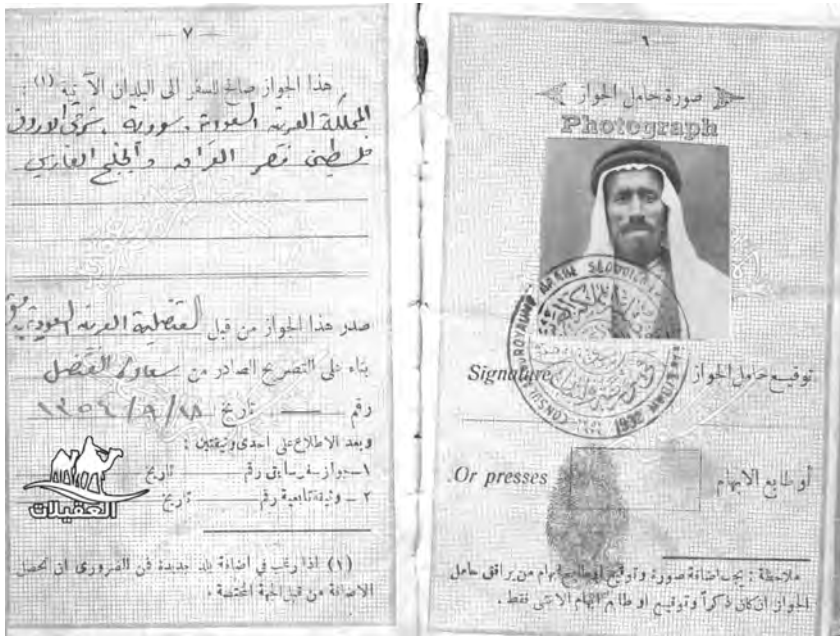 — ٦ —
صورة حامل الجواز
Photograph
توقيع حامل الجواز Signature
أو طابع الابهام Or presses.
ملاحظة : يجب اضافة صورة وتوقيع او طابع ابهام من يرافق حامل
الجواز ان كان ذكراً وتوقيع او طابع ابهام الانثى فقط .
— ٧ —
هذا الجواز صالح للسفر الى البلدان الآتية (١) :
المملكة العربية السعودية . سورية . شرقي الاردن
فلسطين مصر العراق والخليج الفارسي
صدر هذا الجواز من قبل القنصلية العربية السعودية
بناء على التصريح الصادر من سعادة القنصل
رقم — تاريخ ١٨/٩/١٣٥٤
وبعد الاطلاع على احدى وثيقتين :
١ـ جواز سفر سابق رقم — تاريخ
٢ ـ وثيقة تابعية رقم — تاريخ
العقيلات
(١) اذا رغب في اضافة بلد جديدة فمن الضروري ان تحصل
الاضافة من قبل الجهة المختصة .